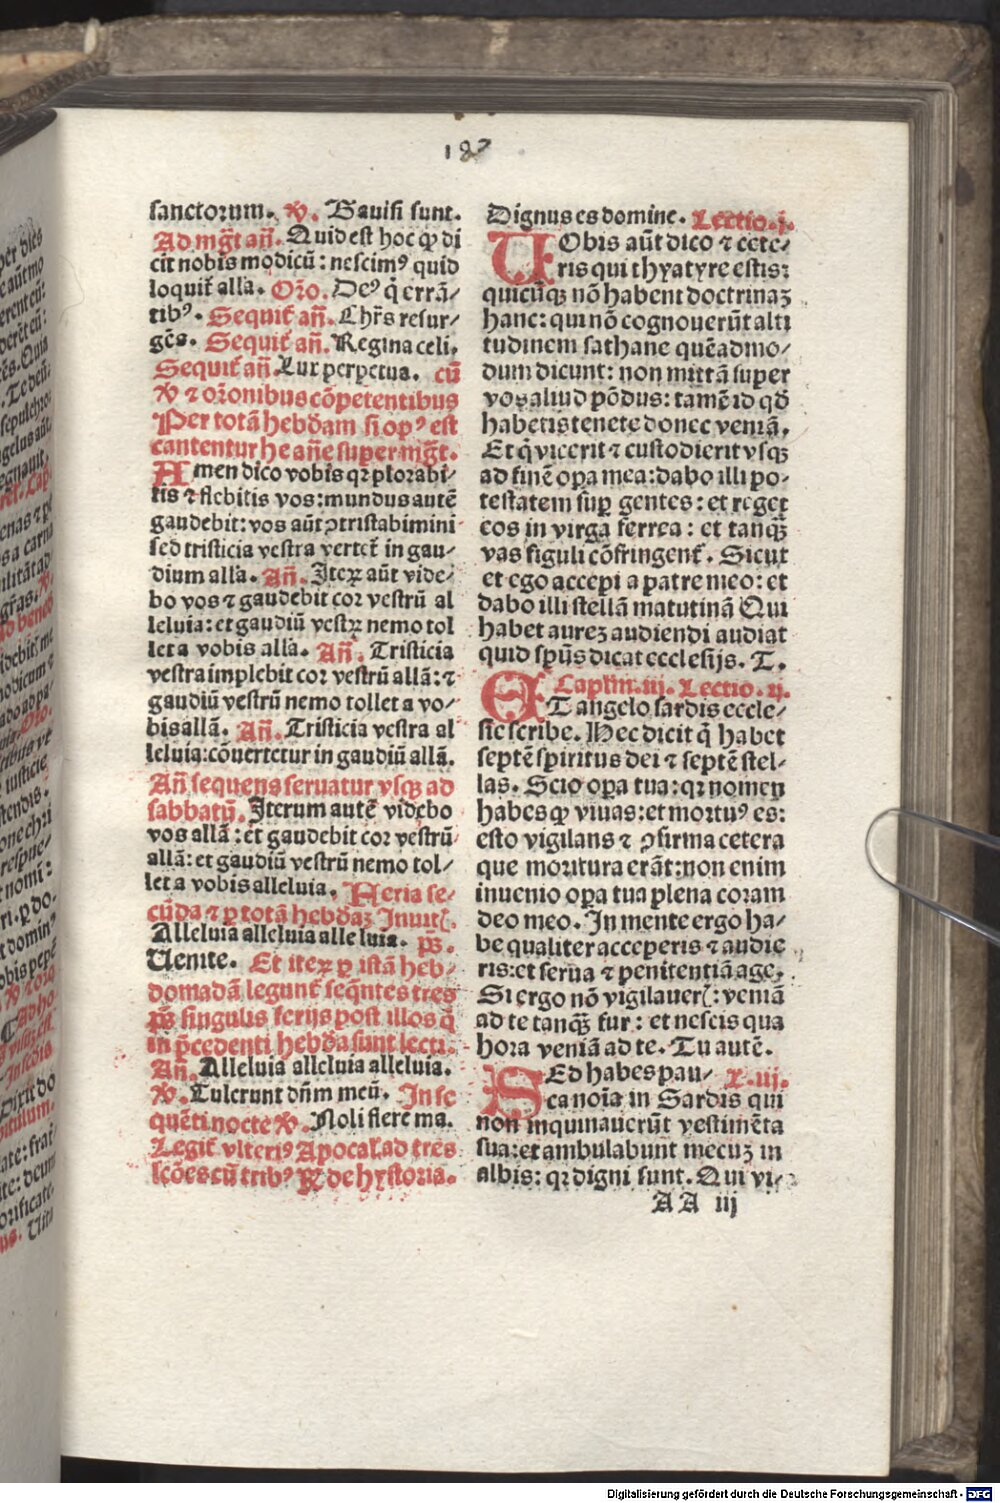 187
sanctorum. ℣. Gauisi sunt.
Ad mgt̄ añ. Quid est hoc qꝫ di
cit nobis modicū: nescimꝰ quid
loquit̃ allā. Orõ. Deꝰ q̇ errā⸗
tibꝰ. Sequit̃ añ. Chr̄s resur⸗
gēs. Sequit̃ añ. Regina celi.
Sequit̃ añ. Lux perpetua. cū
℣ ⁊ or̄onibus cōpetentibus
Per totā hebdam si opꝰ est
cantentur he añe super mgt̄.
Amen dico vobis qꝛ plorabi⸗
tis ⁊ flebitis vos: mundus autē
gaudebit: vos aūt ꝯtristabimini
sed tristicia vestra vertet̃ in gau⸗
dium allā. Añ. Iteꝝ aūt vide⸗
bo vos ⁊ gaudebit cor vestrū al
leluia: et gaudiū vestꝝ nemo tol
let a vobis allā. Añ. Tristicia
vestra implebit cor vestrū allā: ⁊
gaudiū vestrū nemo tollet a vo⸗
bis allā. Añ. Tristicia vestra al
leluia: cōuertetur in gaudiū allā.
Añ sequens seruatur vsqꝫ ad
sabbatū. Iterum autē videbo
vos allā: et gaudebit cor vestrū
allā: et gaudiū vestrū nemo tol⸗
let a vobis alleluia. Feria se⸗
cūda ⁊ ꝑ totā hebdaꝫ Inuit̃.
Alleluia alleluia alleluia. p̄s.
Uenite. Et iteꝝ ꝑ istā heb⸗
domadā legunt̃ seq̄ntes tres
p̄s singulis ferijs post illos q̇
in p̄cedenti hebda sunt lecti.
Añ. Alleluia alleluia alleluia.
℣. Tulerunt dn̄m meū. In se
quēti nocte ℣. Noli flere ma.
Legit̃ vlteriꝰ Apocal. ad tres
lc̄oes cū tribꝰ ℟ de hystoria.
Dignus es domine. Lectio .j.
UObis aūt dico ⁊ cete⸗
ris qui thyatyre estis:
quicūqꝫ nō habent doctrinaꝫ
hanc: qui nō cognouerūt alti
tudinem sathane quēadmo⸗
dum dicunt: non mittā super
vos aliud pōdus: tamē id qd̄
habetis tenete donec veniā.
Et q̇ vicerit ⁊ custodierit vsqꝫ
ad finē opa mea: dabo illi po⸗
testatem sup gentes: et reget
eos in virga ferrea: et tanqꝫ
vas figuli cōfringent̃. Sicut
et ego accepi a patre meo: et
dabo illi stellā matutinā Qui
habet aureꝫ audiendi audiat
quid sp̄us dicat ecclesijs. T.
Caplm̄. iij. Lectio .ij.
ET angelo sardis eccle⸗
sie scribe. Hec dicit q̇ habet
septē spiritus dei ⁊ septē stel⸗
las. Scio opa tua: qꝛ nomen
habes qꝫ viuas: et mortuꝰ es:
esto vigilans ⁊ ꝯfirma cetera
que moritura erāt: non enim
inuenio opa tua plena coram
deo meo. In mente ergo ha⸗
be qualiter acceperis ⁊ audie
ris: et serua ⁊ penitentiā age.
Si ergo nō vigilauer̃: veniā
ad te tanqꝫ fur: et nescis qua
hora veniā ad te. Tu autē.
SEd habes pau⸗ L. iij.
ca noīa in Sardis qui
non inquinauerūt vestimēta
sua: et ambulabunt mecuꝫ in
albis: qꝛ digni sunt. Qui vi⸗
AA iij
Digitalisierung gefördert durch die Deutsche Forschungsgemeinschaft - DFG